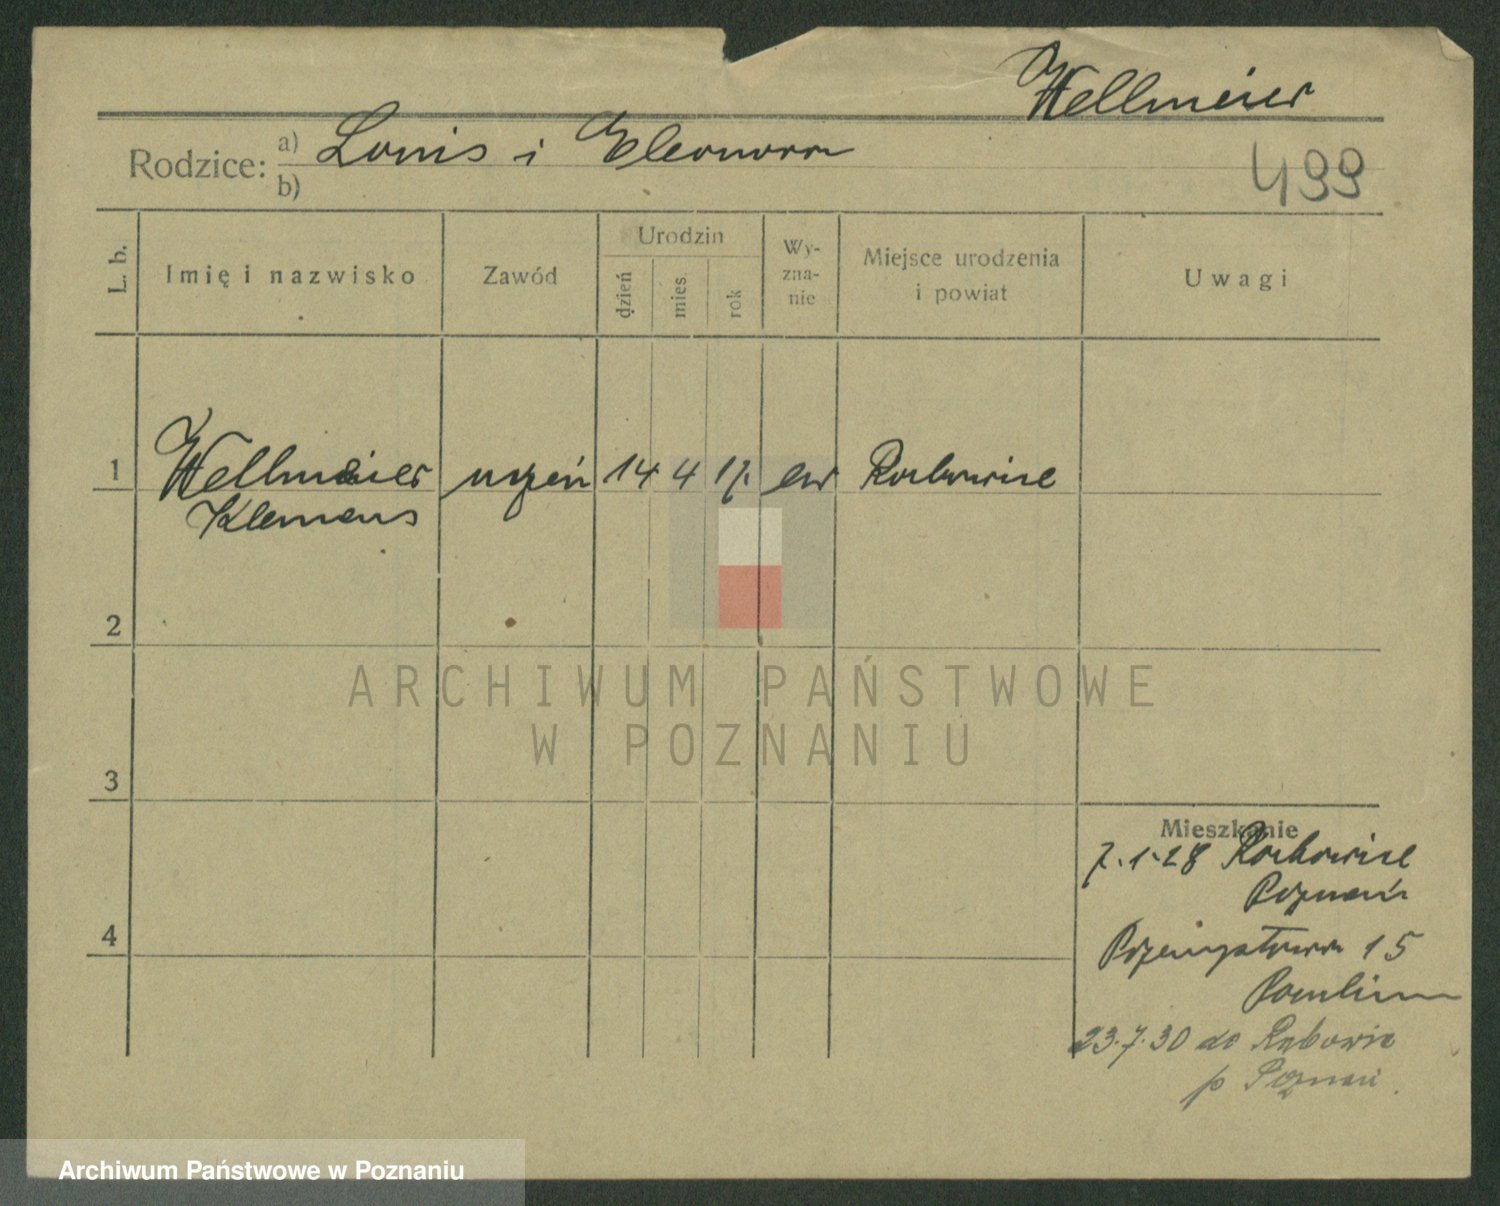 Wellmeier
Rodzice: a) Louis i Eleonora
499
b)
L. b.
Imię i nazwisko
Zawód
Urodzin
dzień
mies.
rok
Wy-
zna-
nie
Miejsce urodzenia
i powiat
Uwagi
1 Wellmeier uczeń 14 4 17. ew
Klemens
2
ARCHIWUM PAŃSTWOWE
W POZNANIU
3
Mieszkanie
7.1.28
Poznań
4
Przemysłowa 15
23.7.30 do Rabowic
p Poznań.
Archiwum Państwowe w Poznaniu